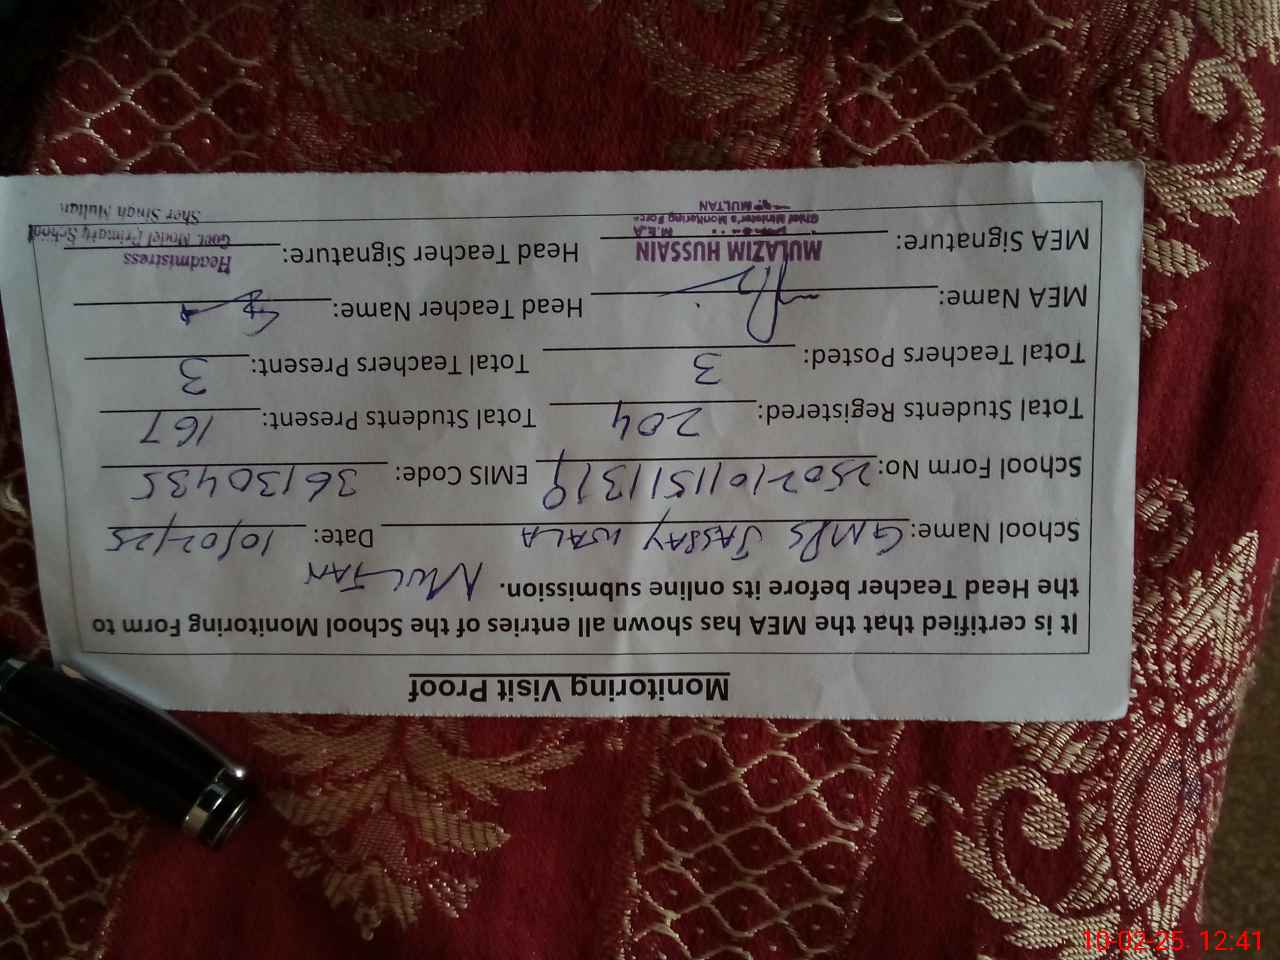 Monitoring Visit Proof
It is certified that the MEA has shown all entries of the School Monitoring Form to
the Head Teacher before its online submission. MULTAN
School Name: GMPS JASSAY WALA Date: 10/02/25
School Form No: EMIS Code: 36130435
Total Students Registered: 204 Total Students Present: 167
Total Teachers Posted: 3 Total Teachers Present: 3
MEA Name: Head Teacher Name:
MEA Signature: MULAZIM HUSSAIN Head Teacher Signature: Headmistress
M.E.A Govt. Model Primary School
Chief Minister's Monitoring Force Sher Singh Multan
MULTAN
10-02-25. 12:41